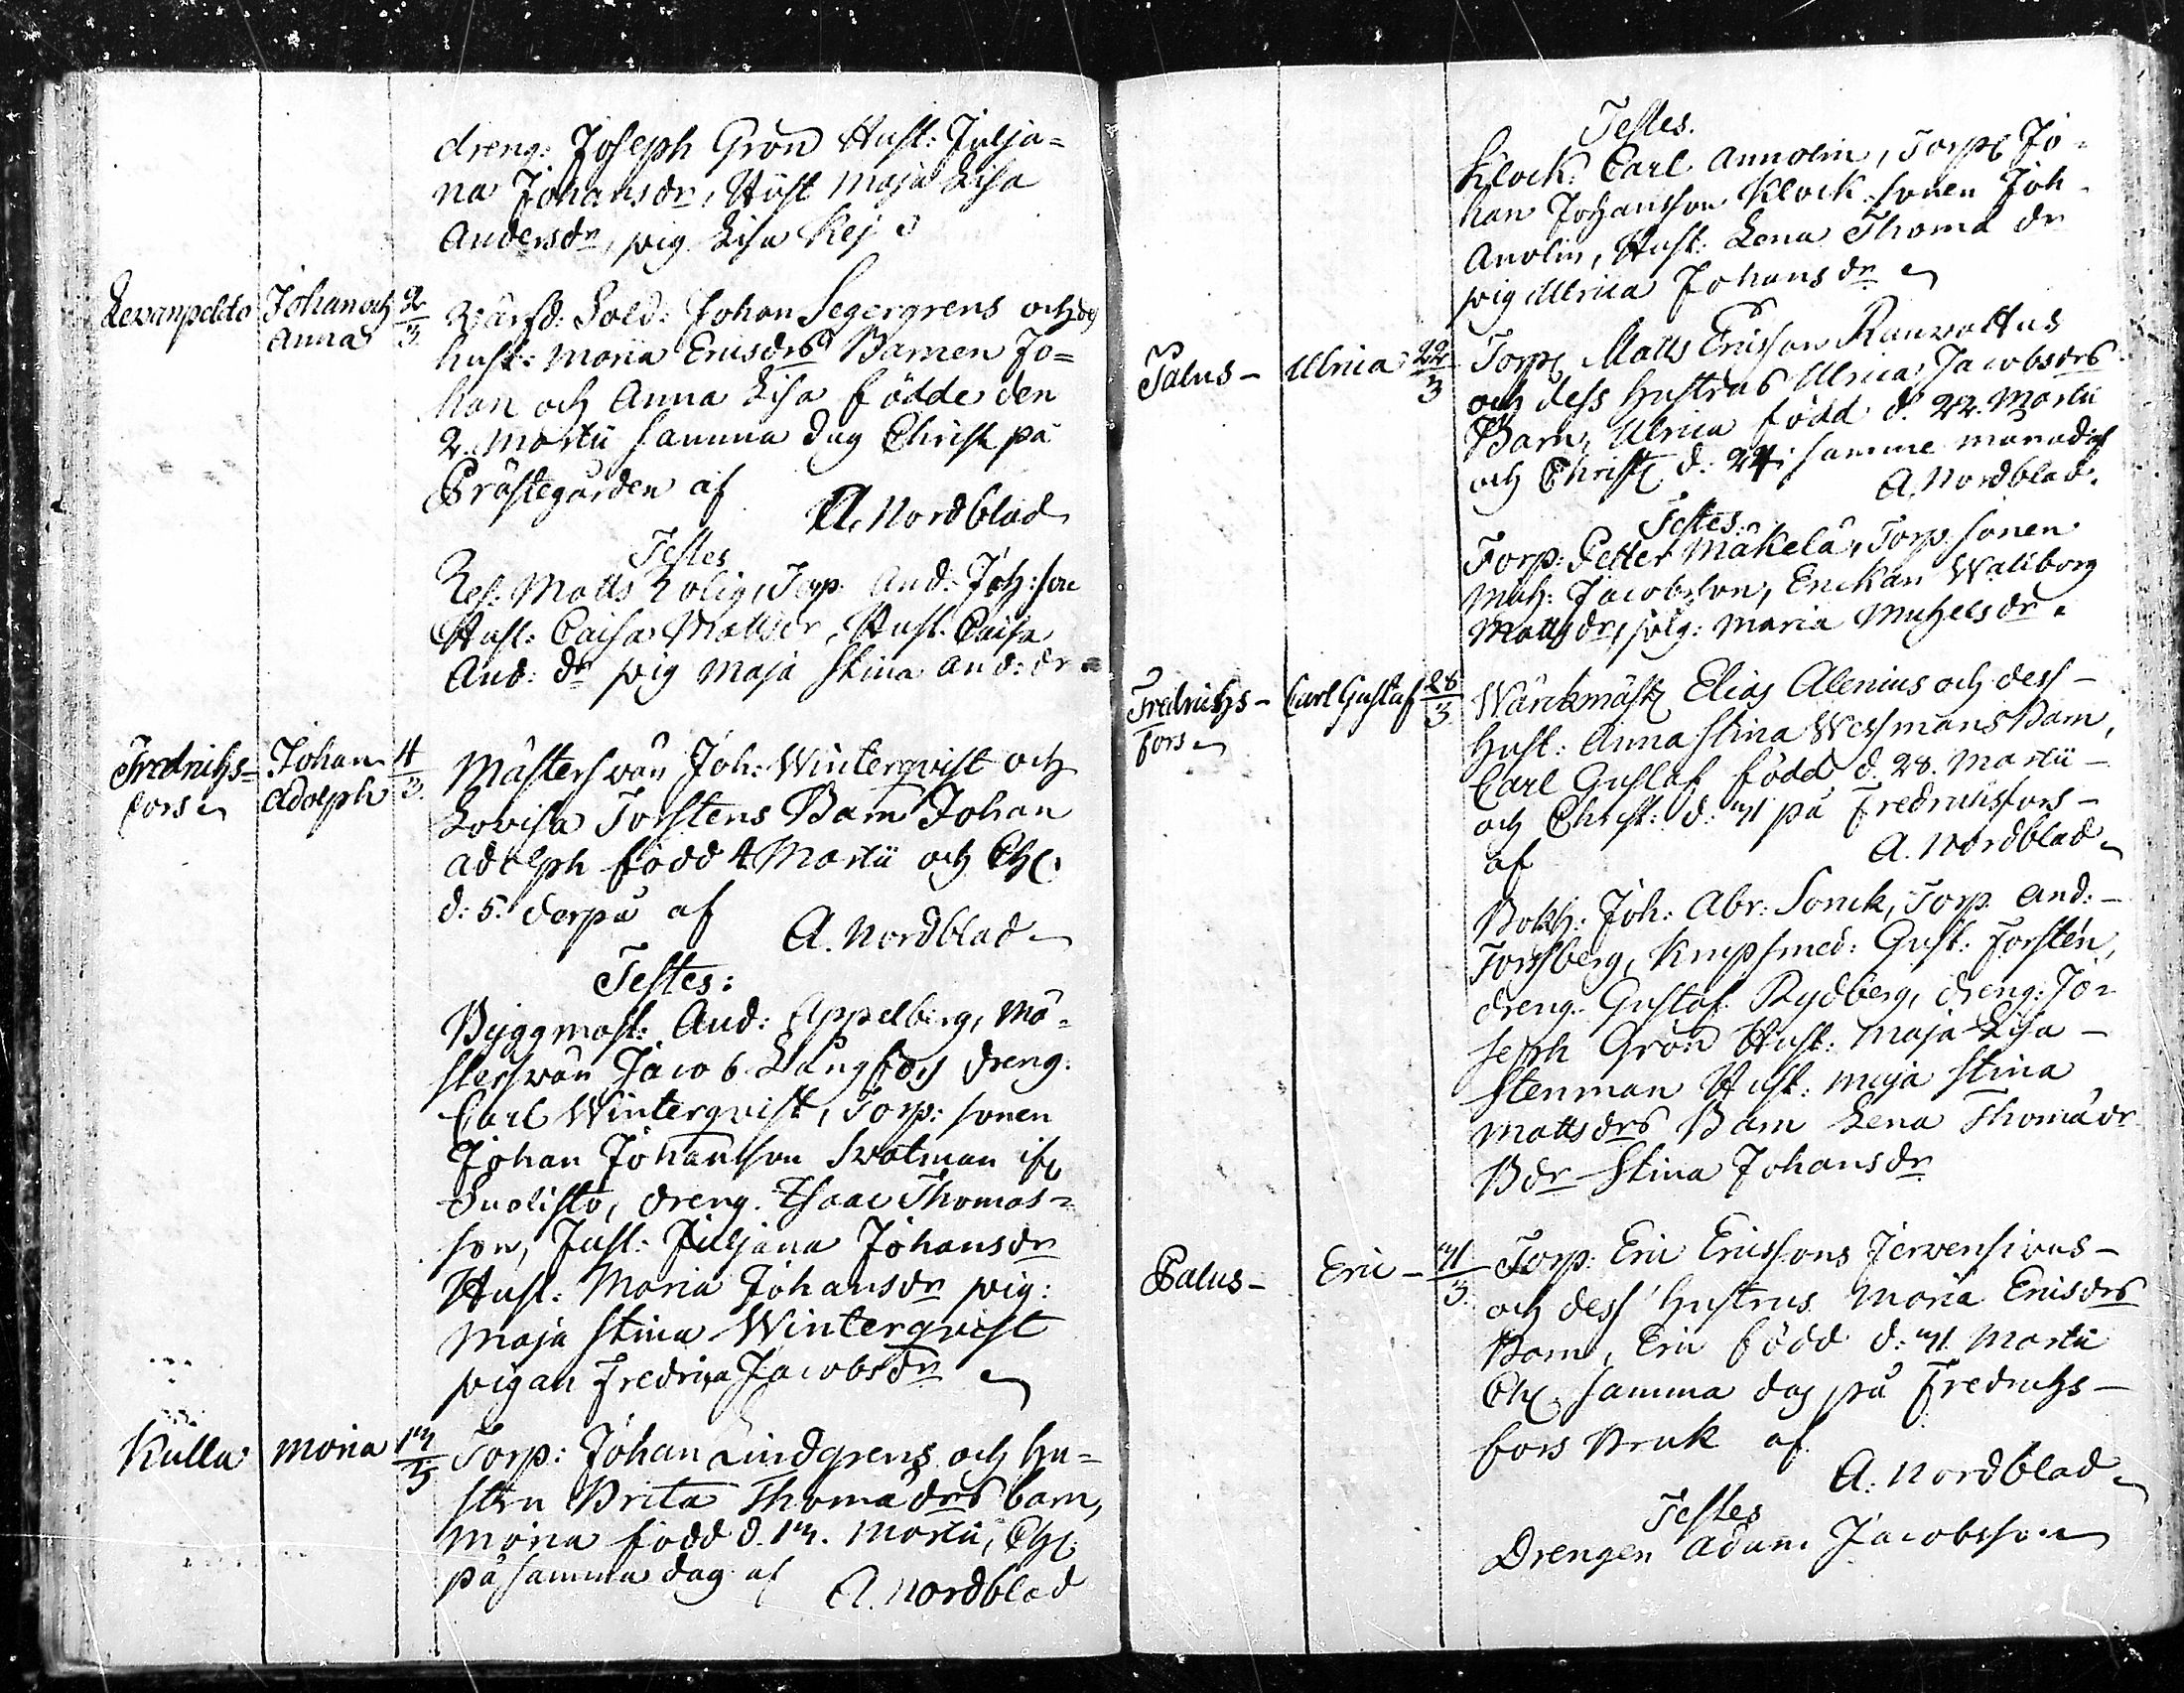 dreng: Joseph Grön Hust: Julja=
na Johansdr, Hust Maja Lisa
Andersdr, pig Lisa
Levanpelto Johan och Anna 2/3 Värfd: Sold: Johan Segergrens och
hust: Maria Ericsdrs Barnen Jo=
han och Anna Lisa födde den
2. Martii samma dag Christ på
Prästegården af
A. Nordblad
Testes
Matts Rolig, Torp. And: Joh:son
Hust: Caisa Mattsdr, Hust. Caisa
And: dr pig Maja Stina And: dr
Fredrichs=fors Johan Adolph 4/3 Mästersvän Joh: Winterqvist och
Lovisa Torstens Barn Johan
Adolph född 4 Martii och Ch:
d: 5. derpå af
A. Nordblad
Testes:
Byggmäst: And: Appelberg, Mä=
stersvän Jacob Långfors dreng:
Carl Winterqvist, Torp: sonen
Johan Johansson Svatman
Suolisto, dreng. Isaac Thomas=
son, Hust: Juljana Johansdr
Hust: Maria Johansdr pig:
Maja Stina Winterqvist
pigan Fredrica Jacobsdr
Kulla Maria 13/3 Torp: Johan Lindgrens och Hu=
strn Brita Thomædrs barn,
Maria född d. 13. Martii, Ch:
på samma dag af
A. Nordblad
Testes.
Klock: Carl Annolin, Torp: Jo=
han Johansson Klock. sonen Joh
Anolin, Hust: Lena Thomæ dr
pig Ulrica Johansdr
Palus - Ulrica 22/3 Torp: Matts Ericsson Rauvattus
och dess hustrus Ulrica Jacobsdrs
Barn, Ulrica född d. 22. Martii
och Christ: d: 24 i samme månad af
A. Nordblad.
Testes.
Torp: Petter Mäkelä, Torp. sonen
Mich: Jacobsson, Enckan Wallborg
Mattsdr, pig: Maria Michelsdr.
Fredrichs-fors Carl Gustaf 28/3 Wärckmäst: Elias Alenius och dess -
Hust: Anna Stina Wessmans Barn,
Carl Gustaf född d. 28. Martii -
och Christ: d: 31 på Fredrichsfors -
af
A. Nordblad
Bokh: Joh: Abr: Sonck, Torp. And: -
Forssberg, Knipsmed: Gust: Forstén,
dreng. Gustaf Rydberg, dreng: Jo=
seph Grön Hust: Maja Lisa -
Stenman Hust: Maja Stina
Mattsdrs Barn Lena Thomædr
Bdr Stina Johansdr
Palus - Eric - 31/3 Torp: Eric Ericssons Jervensivus -
och dess Hustrus Maria Ericsdrs
Barn, Eric född d: 31 Martii
Ch: samma dag på Fredrichs -
fors Bruk af
A. Nordblad
Testes
Drengen Adam Jacobsson